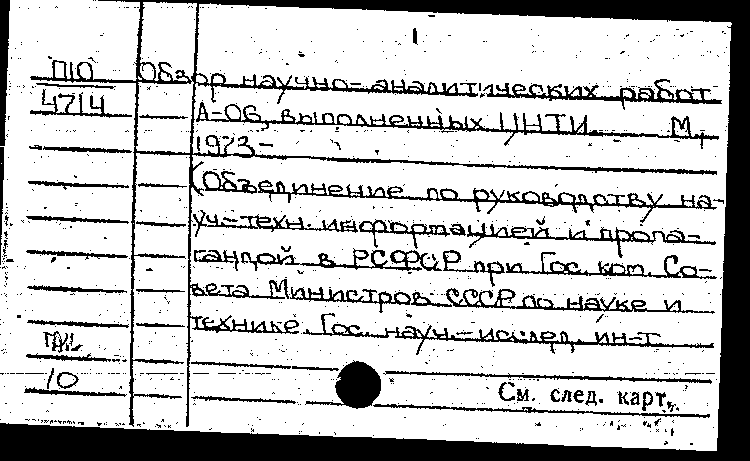 1
П10 Обзор научно-аналитических работ
4714 А-06, выполненных ЦНТИ. М.,
1973-
(Объединение по руководству на-
уч.-техн. информацией и пропа-
гандой в РСФСР при Гос. ком. Со-
вета Министров СССР по науке и
технике. Гос. науч.-исслед. ин-т
10
См. след. карт.